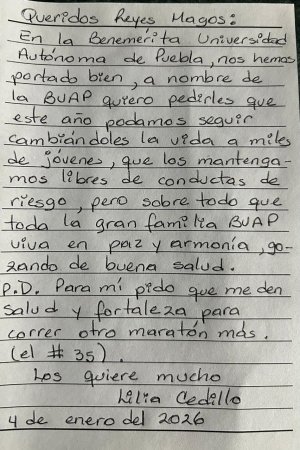 Queridos Reyes Magos:
En la Benemérita Universidad
Autónoma de Puebla, nos hemos
portado bien, a nombre de
la BUAP quiero pedirles que
este año podamos seguir
cambiándoles la vida a miles
de jóvenes, que los mantenga-
mos libres de conductas de
riesgo, pero sobre todo que
toda la gran familia BUAP
viva en paz y armonía, go-
zando de buena salud.
P.D. Para mí pido que me den
salud y fortaleza para
correr otro maratón más.
(el # 35).
Los quiere mucho
Lilia Cedillo
4 de enero del 2026